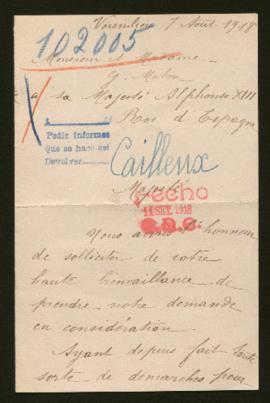 7 Août 1918
102005
Monsieur et Madame
G.
a sa Majesté Alphonse XIII
Roi d'Espagne
A
Pedir informes
Que se hace así
Devolver
Cailleux
Majesté
Hecho
11 SET. 1918
Nous avons l'honneur
de solliciter de votre
haute bienveillance de
prendre notre demande
en considération
Ayant depuis fait toute
sorte de demarches pour